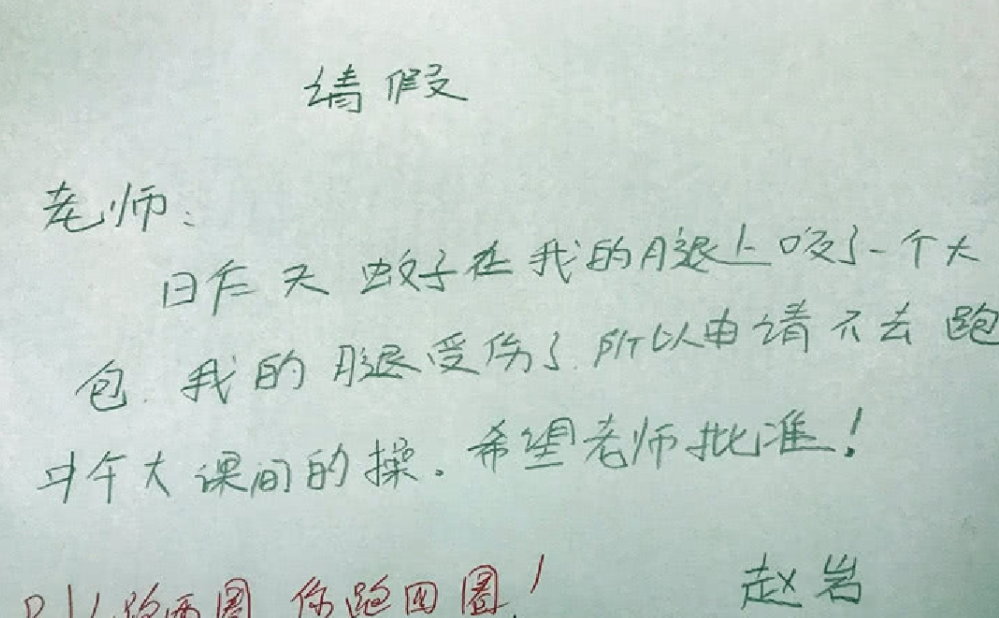 请假
老师:
昨天蚊子在我的腿上咬了一个大
包.我的腿受伤了.所以申请不去跑
大课间的操.希望老师批准!
赵岩
跑两圈 你跑四圈!